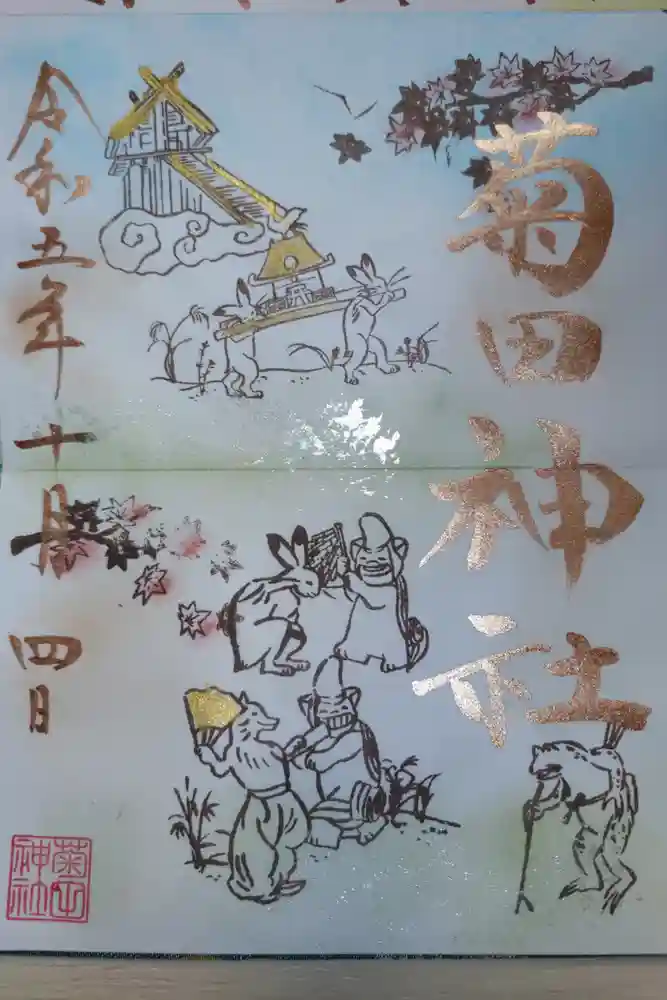 菊田神社
令和五年十月四日
菊田
神社